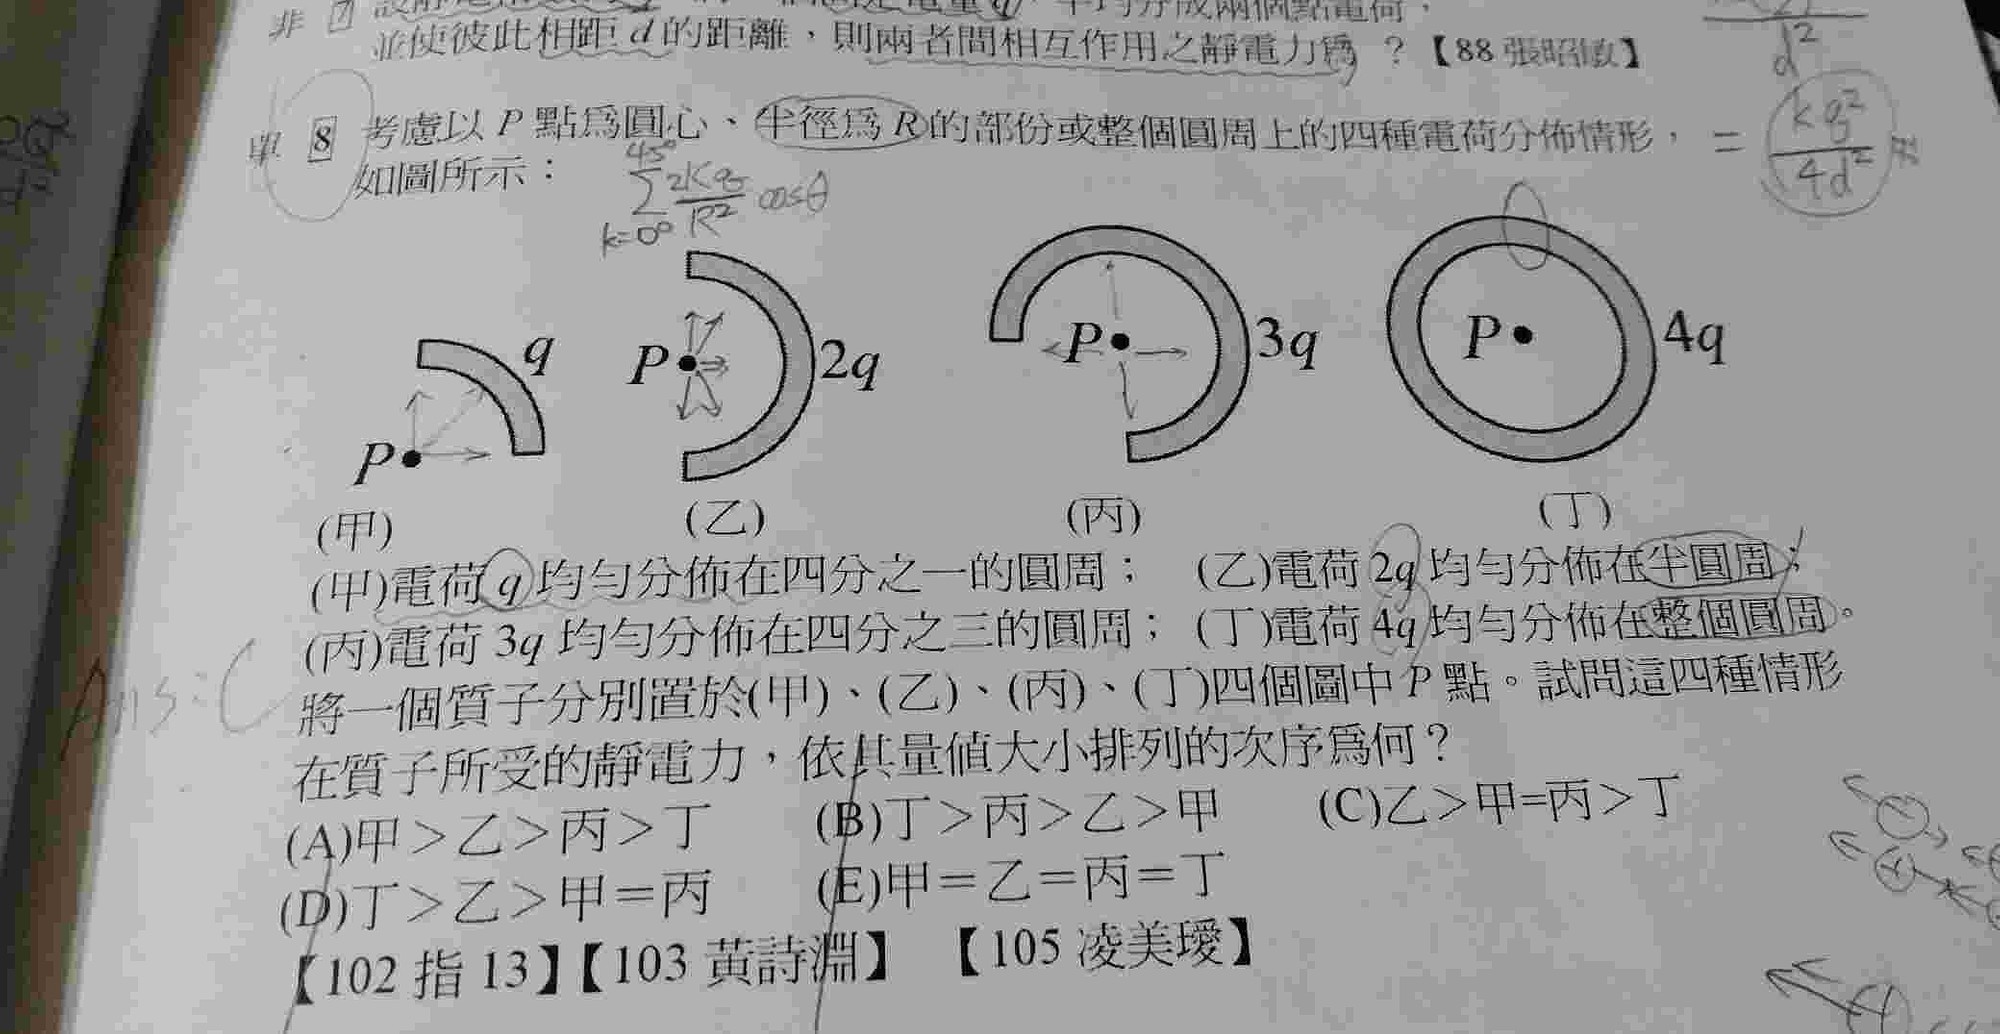 並使彼此相距 d 的距離，則兩者間相互作用之靜電力為 ？【88 張昭敏】
d²
單 8 考慮以 P 點為圓心、半徑為 R 的部份或整個圓周上的四種電荷分佈情形， = kq²/4d²
如圖所示：
45° Σ k=0° 2Kq/R² cosθ
P q
P 2q
P 3q
P 4q
(甲) (乙) (丙) (丁)
(甲)電荷 q 均勻分佈在四分之一的圓周； (乙)電荷 2q 均勻分佈在半圓周；
(丙)電荷 3q 均勻分佈在四分之三的圓周； (丁)電荷 4q 均勻分佈在整個圓周。
Ans：C
將一個質子分別置於(甲)、(乙)、(丙)、(丁)四個圖中 P 點。試問這四種情形
在質子所受的靜電力，依其量值大小排列的次序為何？
(A)甲＞乙＞丙＞丁 (B)丁＞丙＞乙＞甲 (C)乙＞甲=丙＞丁
(D)丁＞乙＞甲＝丙 (E)甲＝乙＝丙＝丁
【102 指 13】【103 黃詩淵】 【105 凌美璦】